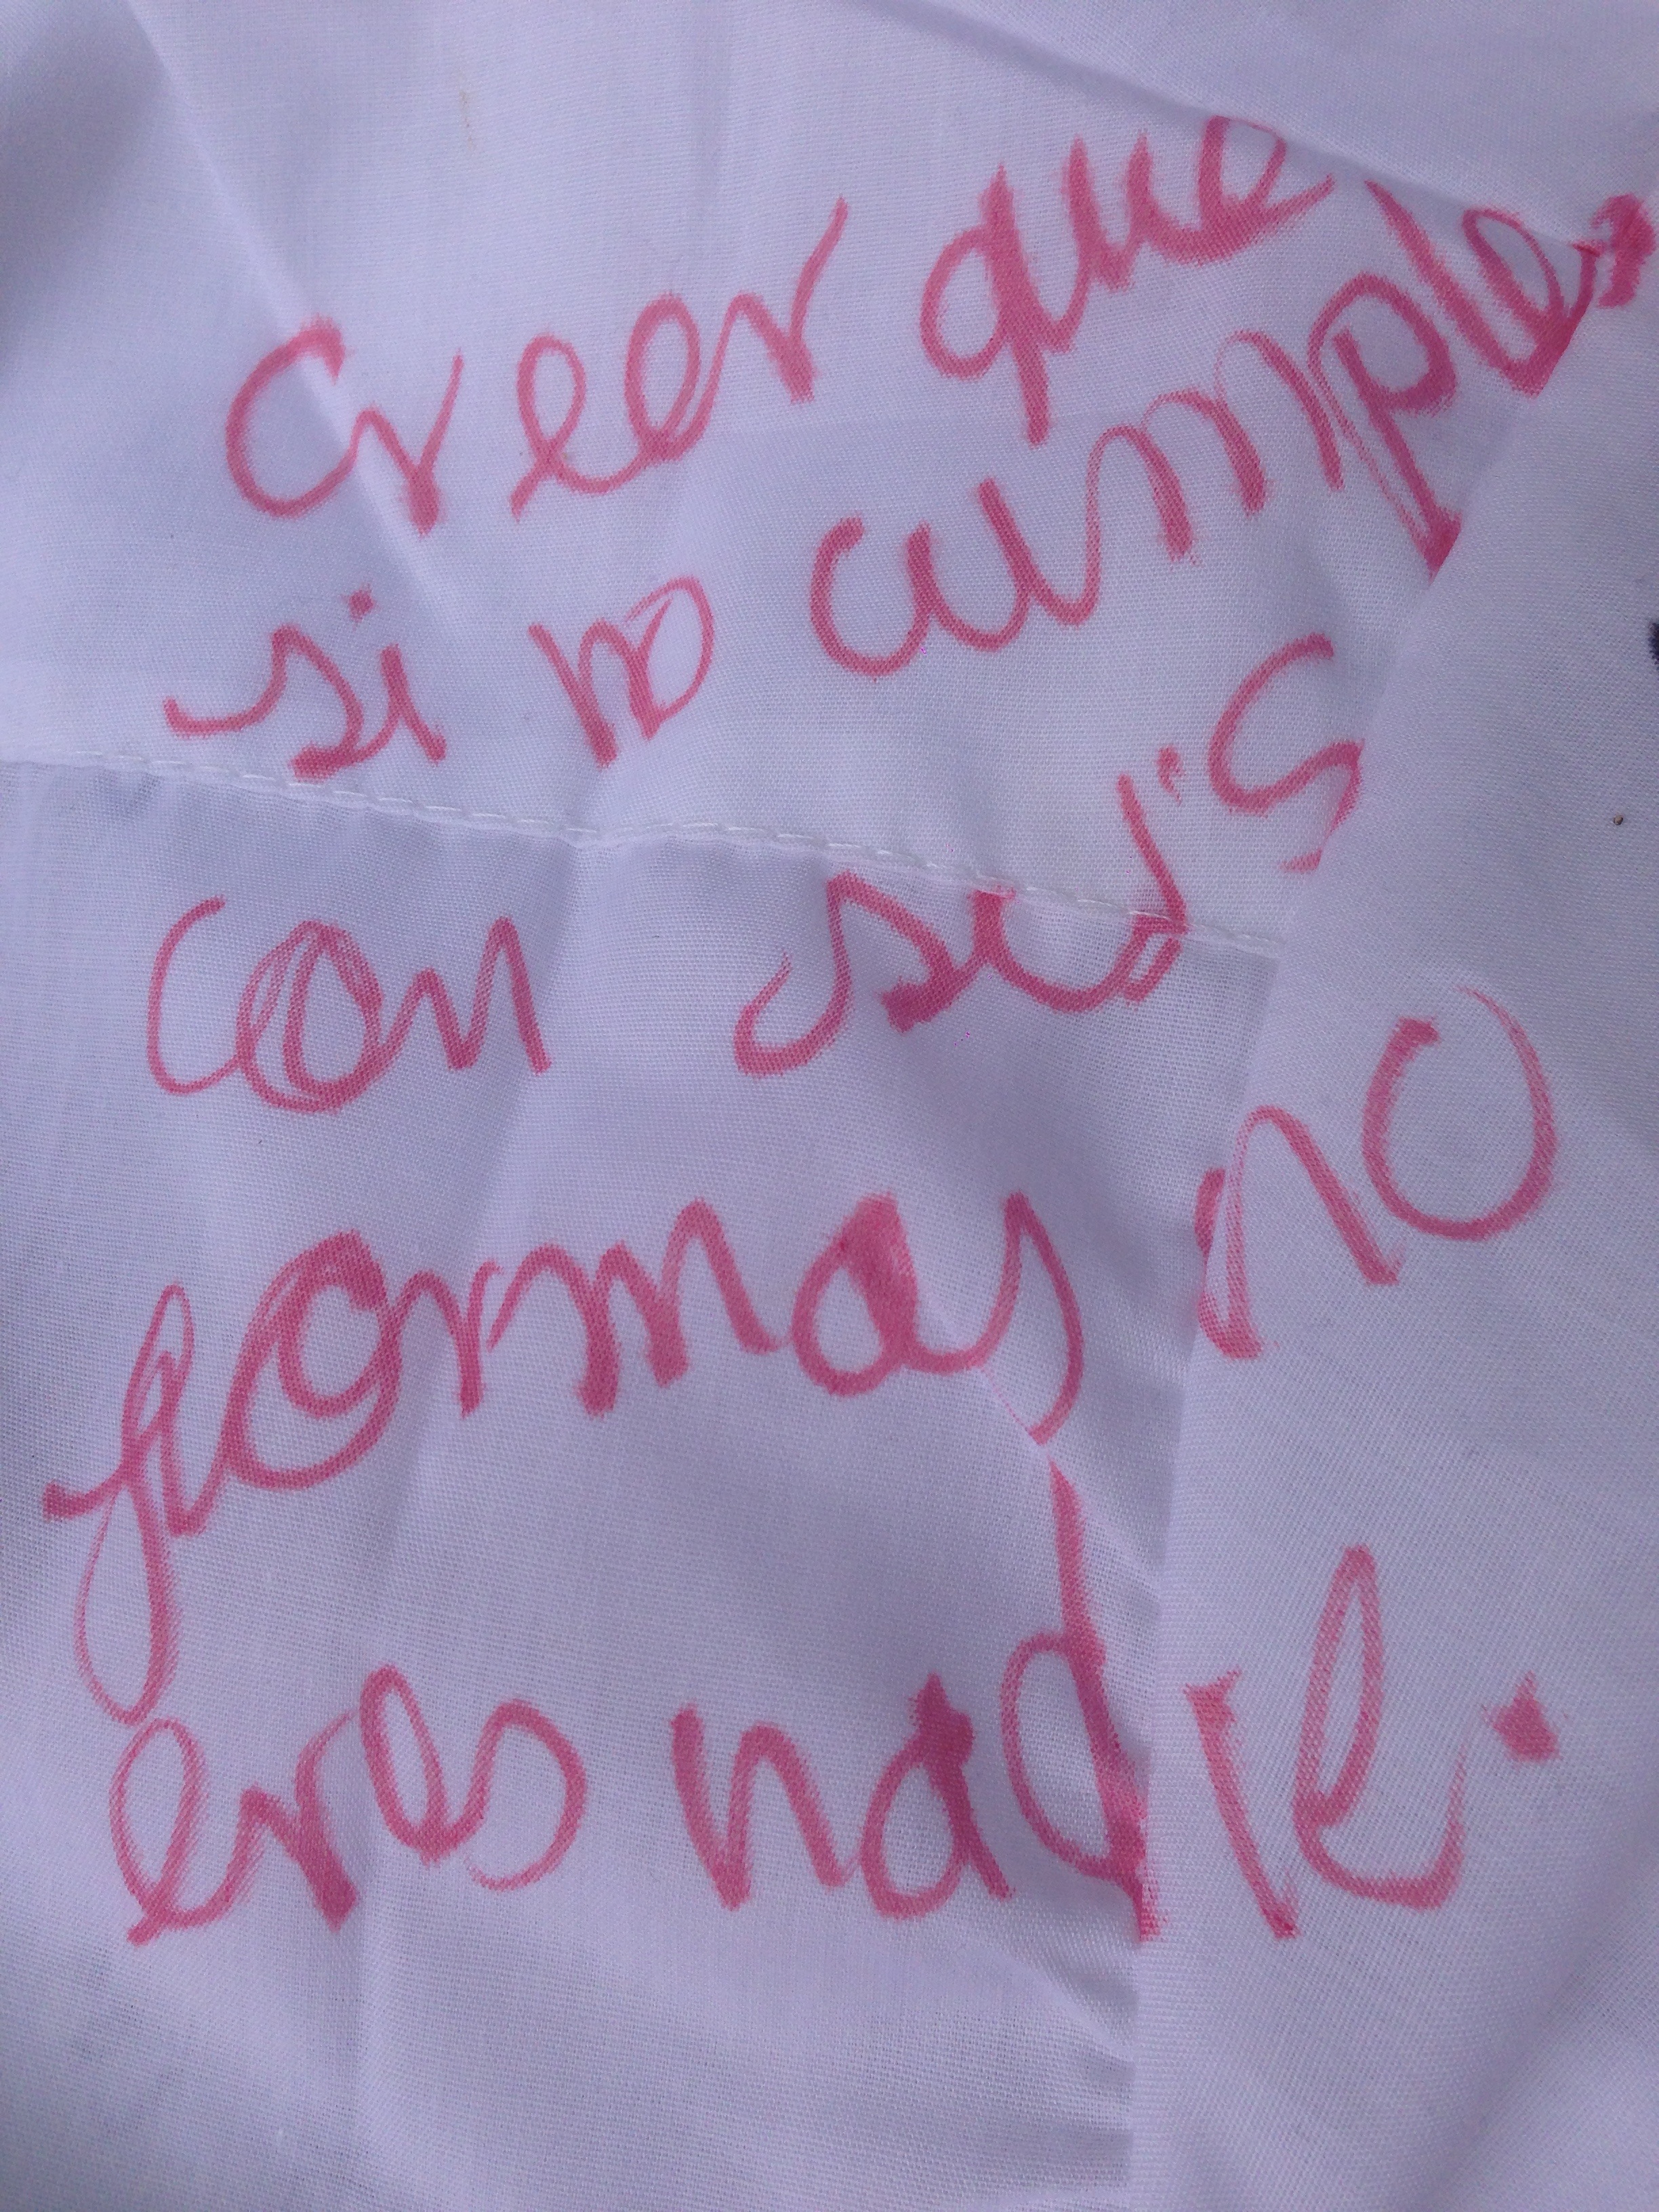 Creer que
si no cumples
con sus
formas no
eres nadie.